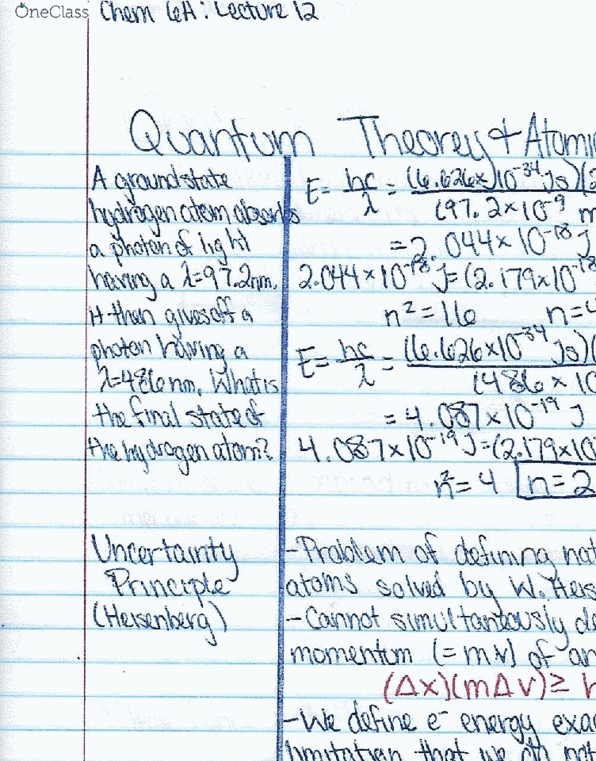 OneClass
Chem 6A: Lecture 12
Quantum Theorey + Atomi
A ground state
hydrogen atom absorbs
a photon of light
having a λ=97.2nm.
H then gives off a
photon having a
λ=486nm. What is
the final state of
the hydrogen atom?
E = hc/λ = (6.626x10⁻³⁴ Js)(2
(97.2×10⁻⁹ m
= 2.044×10⁻¹⁸ J
2.044×10⁻¹⁸ J=(2.179×10⁻¹⁸
n²=16 n=4
E = hc/λ = (6.626×10⁻³⁴ Js)(
(486×10
= 4.087×10⁻¹⁹ J
4.087×10⁻¹⁹ J=(2.179×10
n²=4 n=2
Uncertainty
Principle
(Heisenberg)
-Problem of defining nat
atoms solved by W. Heis
-Cannot simultaneously de
momentum (=mv) of an
(Δx)(mΔv)≥ h
-We define e⁻ energy exac
limitation that we do not